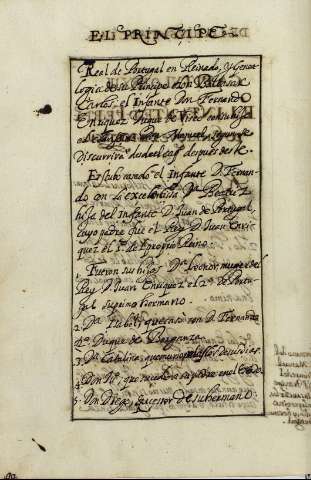 EL PRINCIPE
Real de Portugal en Reinado, y Genea-
logia deste Principe Don Baltasar
Carlos, el Infante Don Fernando
Enriquez Duque de Viseo con su hijo
Manuel, segun se
Discurrirá desde el cap. despues deste.
Estubo casado el Infante D. Fernan-
do con la excelentissa. Da. Beatriz
hija del Infante D. Juan de Portugal
cuyo padre fue el Rey D. Juan Enri-
quez el 1º. de proprio Reino.
Fueron sus hijos
1. Da. Leonor muger del
Rey D. Juan Enriquez el 2º. de Portu-
gal su primo hermano.
2. Da. Isabel, que casó con D. Fernando
2º. Duque de Berganza.
3. Da. Catalina, que murio en la flor de sus dias.
4. Don Nº. que sucedio a su padre en el
5. Don Diego, sucessor de su hermano